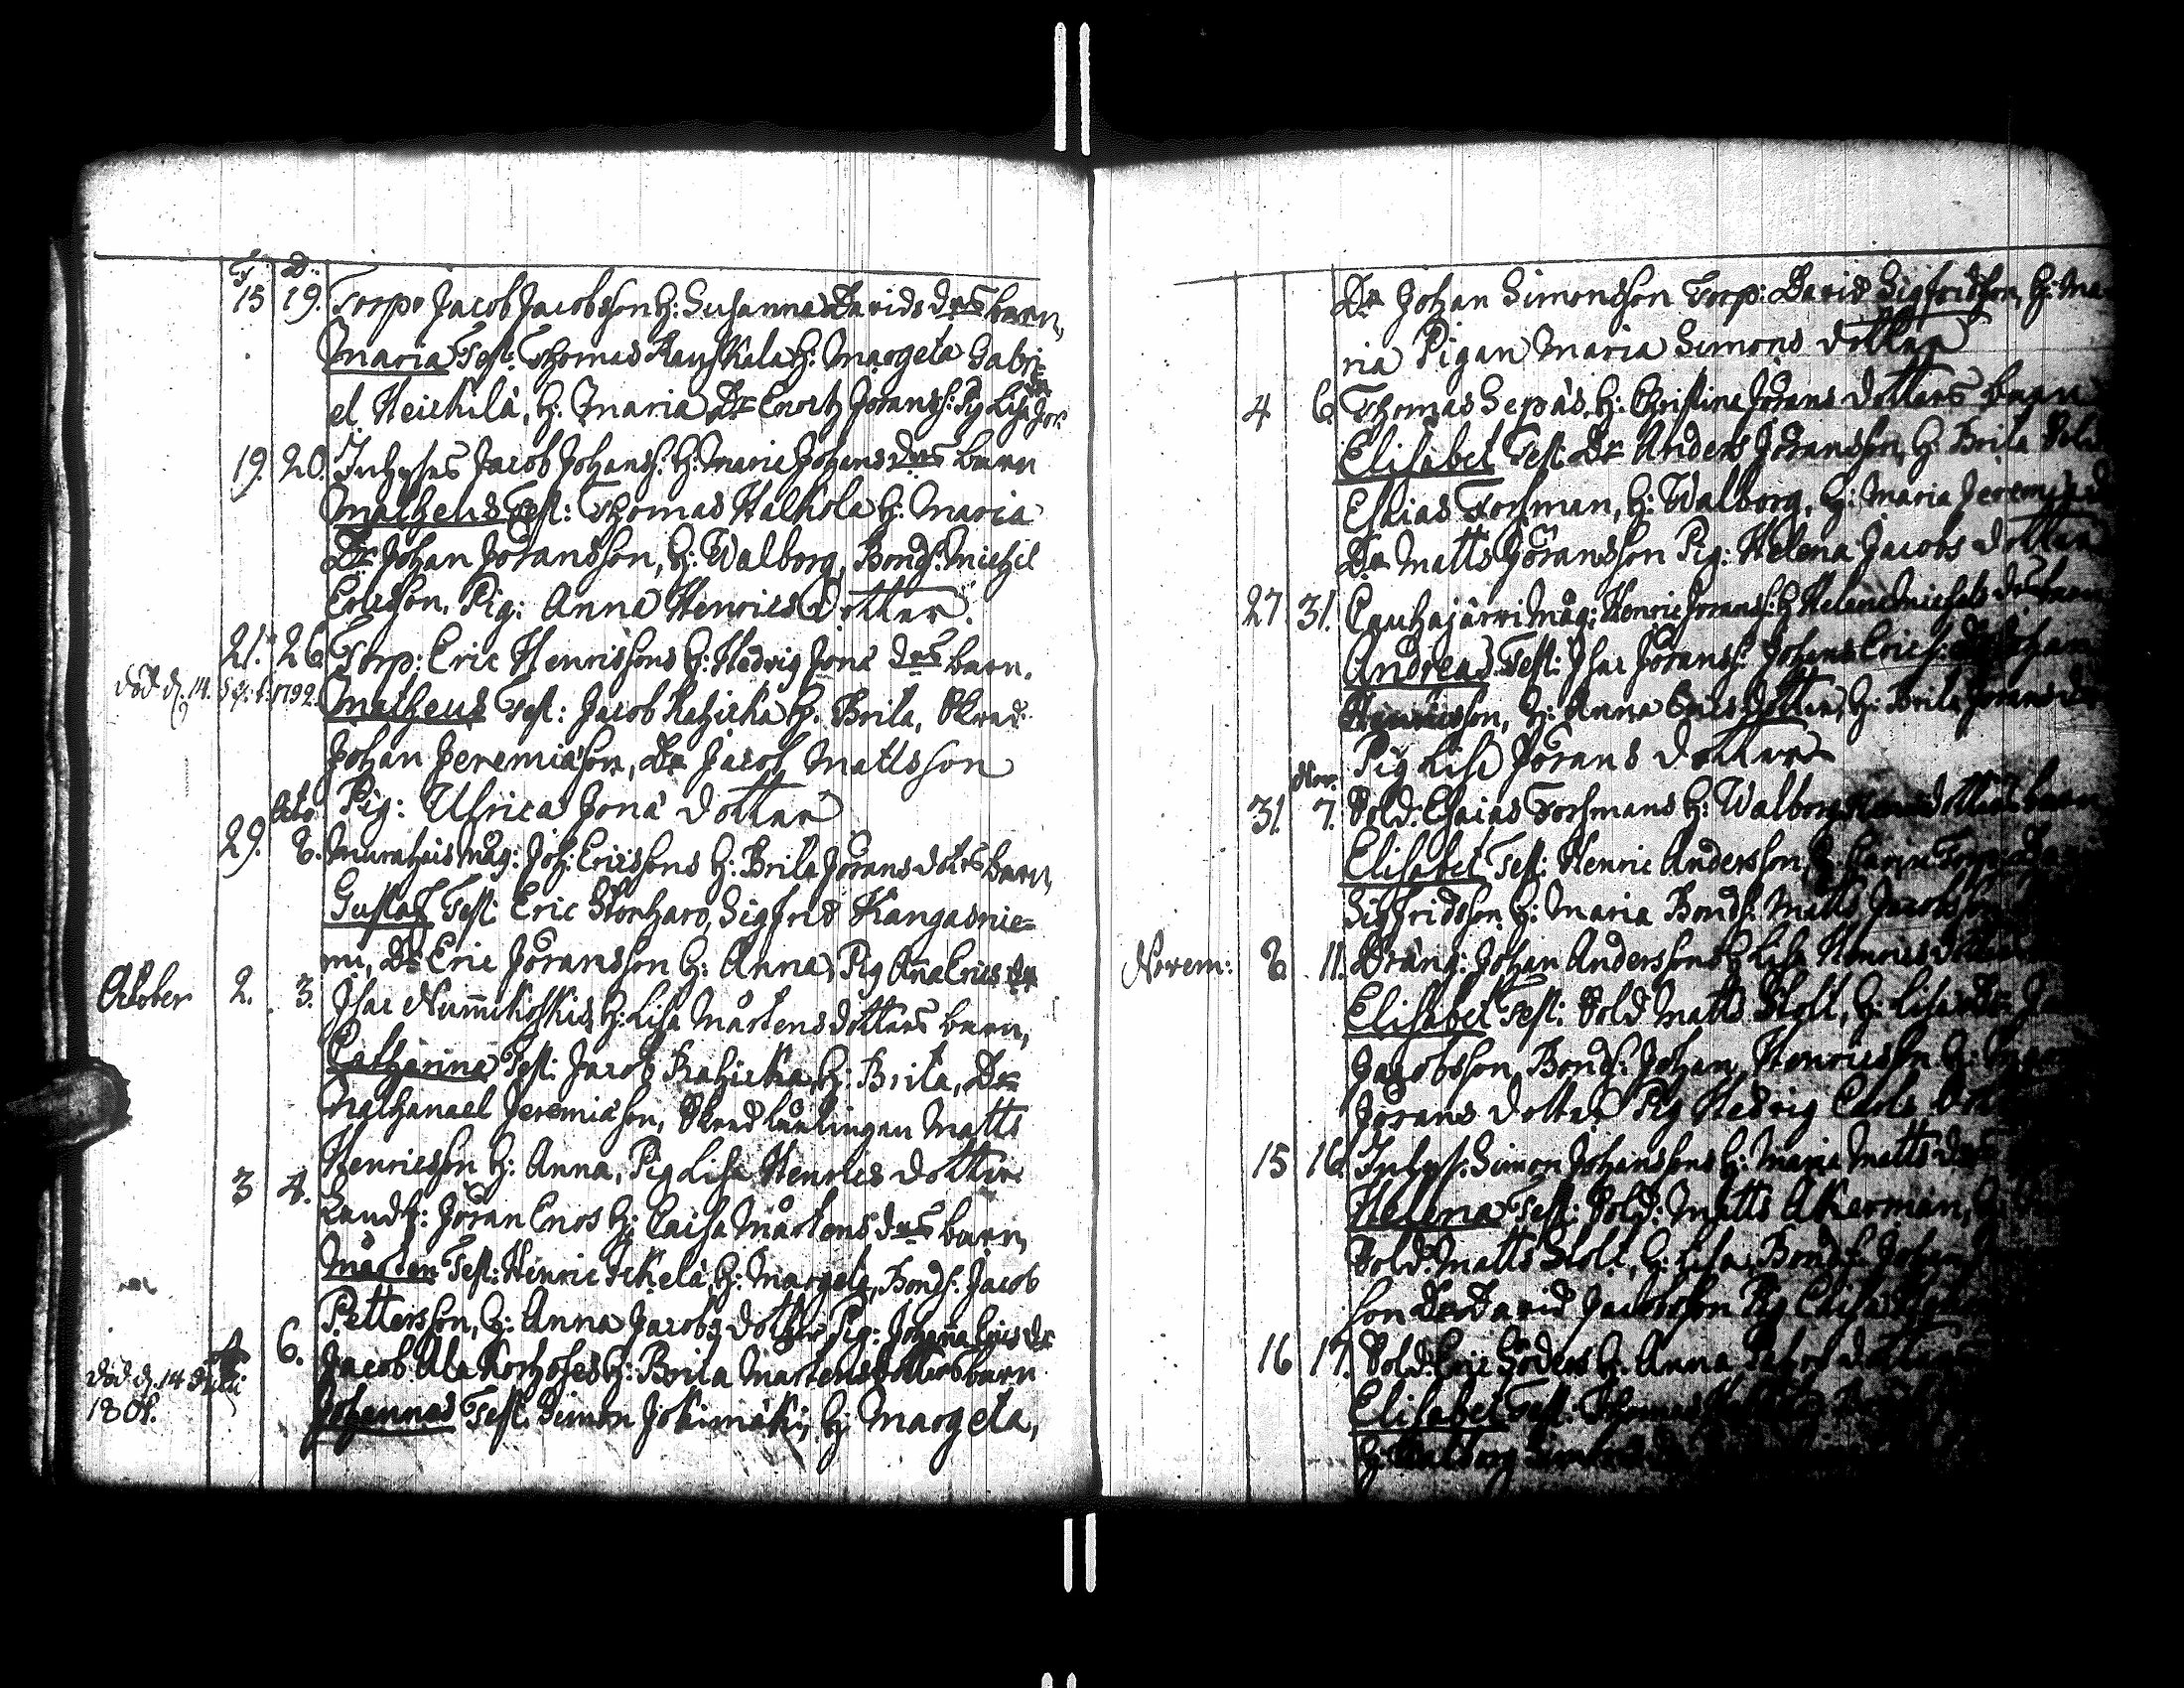 F. D.
15 19. Torp. Jacob Jacobsson H: Susanna Davids drs barn,
Maria Test: Thomas Kauhkala H: Margeta Gabri-
el Heickilä, H: Maria Dr Erich Jöranss: Pig Lisa Jör.
19. 20. Inhyses Jacob Johanss: H: Maria Johans drs barn
Matheus Test: Thomas Halkola H: Maria
Dr Johan Jöransson, H: Walborg, Bonds: Michel
Ericsson, Pig: Anna Henrics dotter.
21. 26 Torp: Eric Henrissons H: Hedvig Jona drs barn.
död d. 14. Sept: 1792. Matheus Test: Jacob Rahicka H: Brita, Skred:
Johan Jeremiäson, Dr Jacob Mattsson
Octo. Pig: Ulrica Jona dotter
29. 8. Muraheis Måg: Joh: Ericssons H: Brita Jörans dotrs barn,
Gustaf Test: Eric Storharo, Sigfrid Kangasnie-
mi, Dr Eric Jöransson H: Anna, Pig Aña Erics dr
October 2. 3. Isac Num̃ikoskis H: Lisa Mårtens dotters barn,
Catharina Test: Jacob Rahicka H: Brita, Dr
Nathanael Jeremiäson, Skred Lärlingen Matts
Henricsson H: Anna, Pig Lisa Henrics dotter
3 4. Landb: Jöran Enos H: Caisa Mårtens drs barn,
Mårten Test: Henric Ickelä, H: Margeta, Bonds: Jacob
Pettersson, H: Anna Jacobs dotter, Pig: Johanna Erics dr
4 6. Jacob Ala Korhoses H: Brita Mårtens dotters barn
död d. 14 Julii 1801. Johannes Test: Simon Jokimäki, H: Margeta,
Dr Johan Simonsson Torp: David Sigfridsson, H: Ma-
ria Pigan Maria Simons dotter
4 6. Thomas Sepäs H: Christina Jörans dotters barn
Elisabet Test: Dr Anders Jöransson, H: Brita Sold:
Esaias Forsman, H: Walborg, H: Maria Jeremiä
Dr Matts Jöransson Pig: Helena Jacobs dotter
27 31. Cauhajärvi Måg: Henric Jöranss: H Helena Michels drs barn
Andreas Test: Isac Jöranss: Johans Erics:
Henricsson, H: Anna Erics dotter, H: Brita Jörans dr
Nov. Pig Lisa Jörans dotter
31. 7. Sold: Esaias Forsmans H: Walborg dotters barn
Elisabet Test: Henric Andersson, H: Carin Torp:
Sigfridsson H: Maria Bonds: Matts Jacobsson
Novem: 8 11. Dräng: Johan Anderssons H Lisa Henrics dotters
Elisabet Test: Sold Matts Stolt, H: Lisa Dr
Jacobsson, Bonds: Johan Henricsson H:
Jörans dotter Pig Hedvig Carls
15 16. Inhys: Simon Johanssons H: Maria Matts drs
Helena Test: Sold: Matts Åkerman,
Sold: Matts Stolt, H: Lisa, Bonds: Johan
son Dr David Jacobsson Pig Caisa
16 17. Sold: Eric Söders H: Anna dotters
Elisabet Test: Thomas
H: Walborg